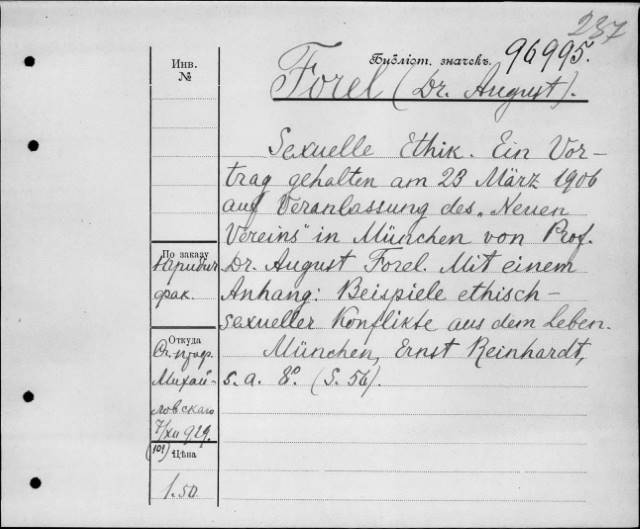 237
Инв.
№
Библіот. значекъ. 96995.
Forel (Dr. August).
Sexuelle Ethik. Ein Vor-
trag gehalten am 23 März 1906
auf Veranlassung des „Neuen
Vereins" in München von Prof.
Dr. August Forel. Mit einem
Anhang: Beispiele ethisch-
sexueller Konflikte aus dem Leben.
München, Ernst Reinhardt,
s. a. 8°. (S. 56).
По заказу
Юридич.
фак.
Откуда
От проф.
Михай-
ловскаго
7/XII 929.
(101) Цѣна
1.50